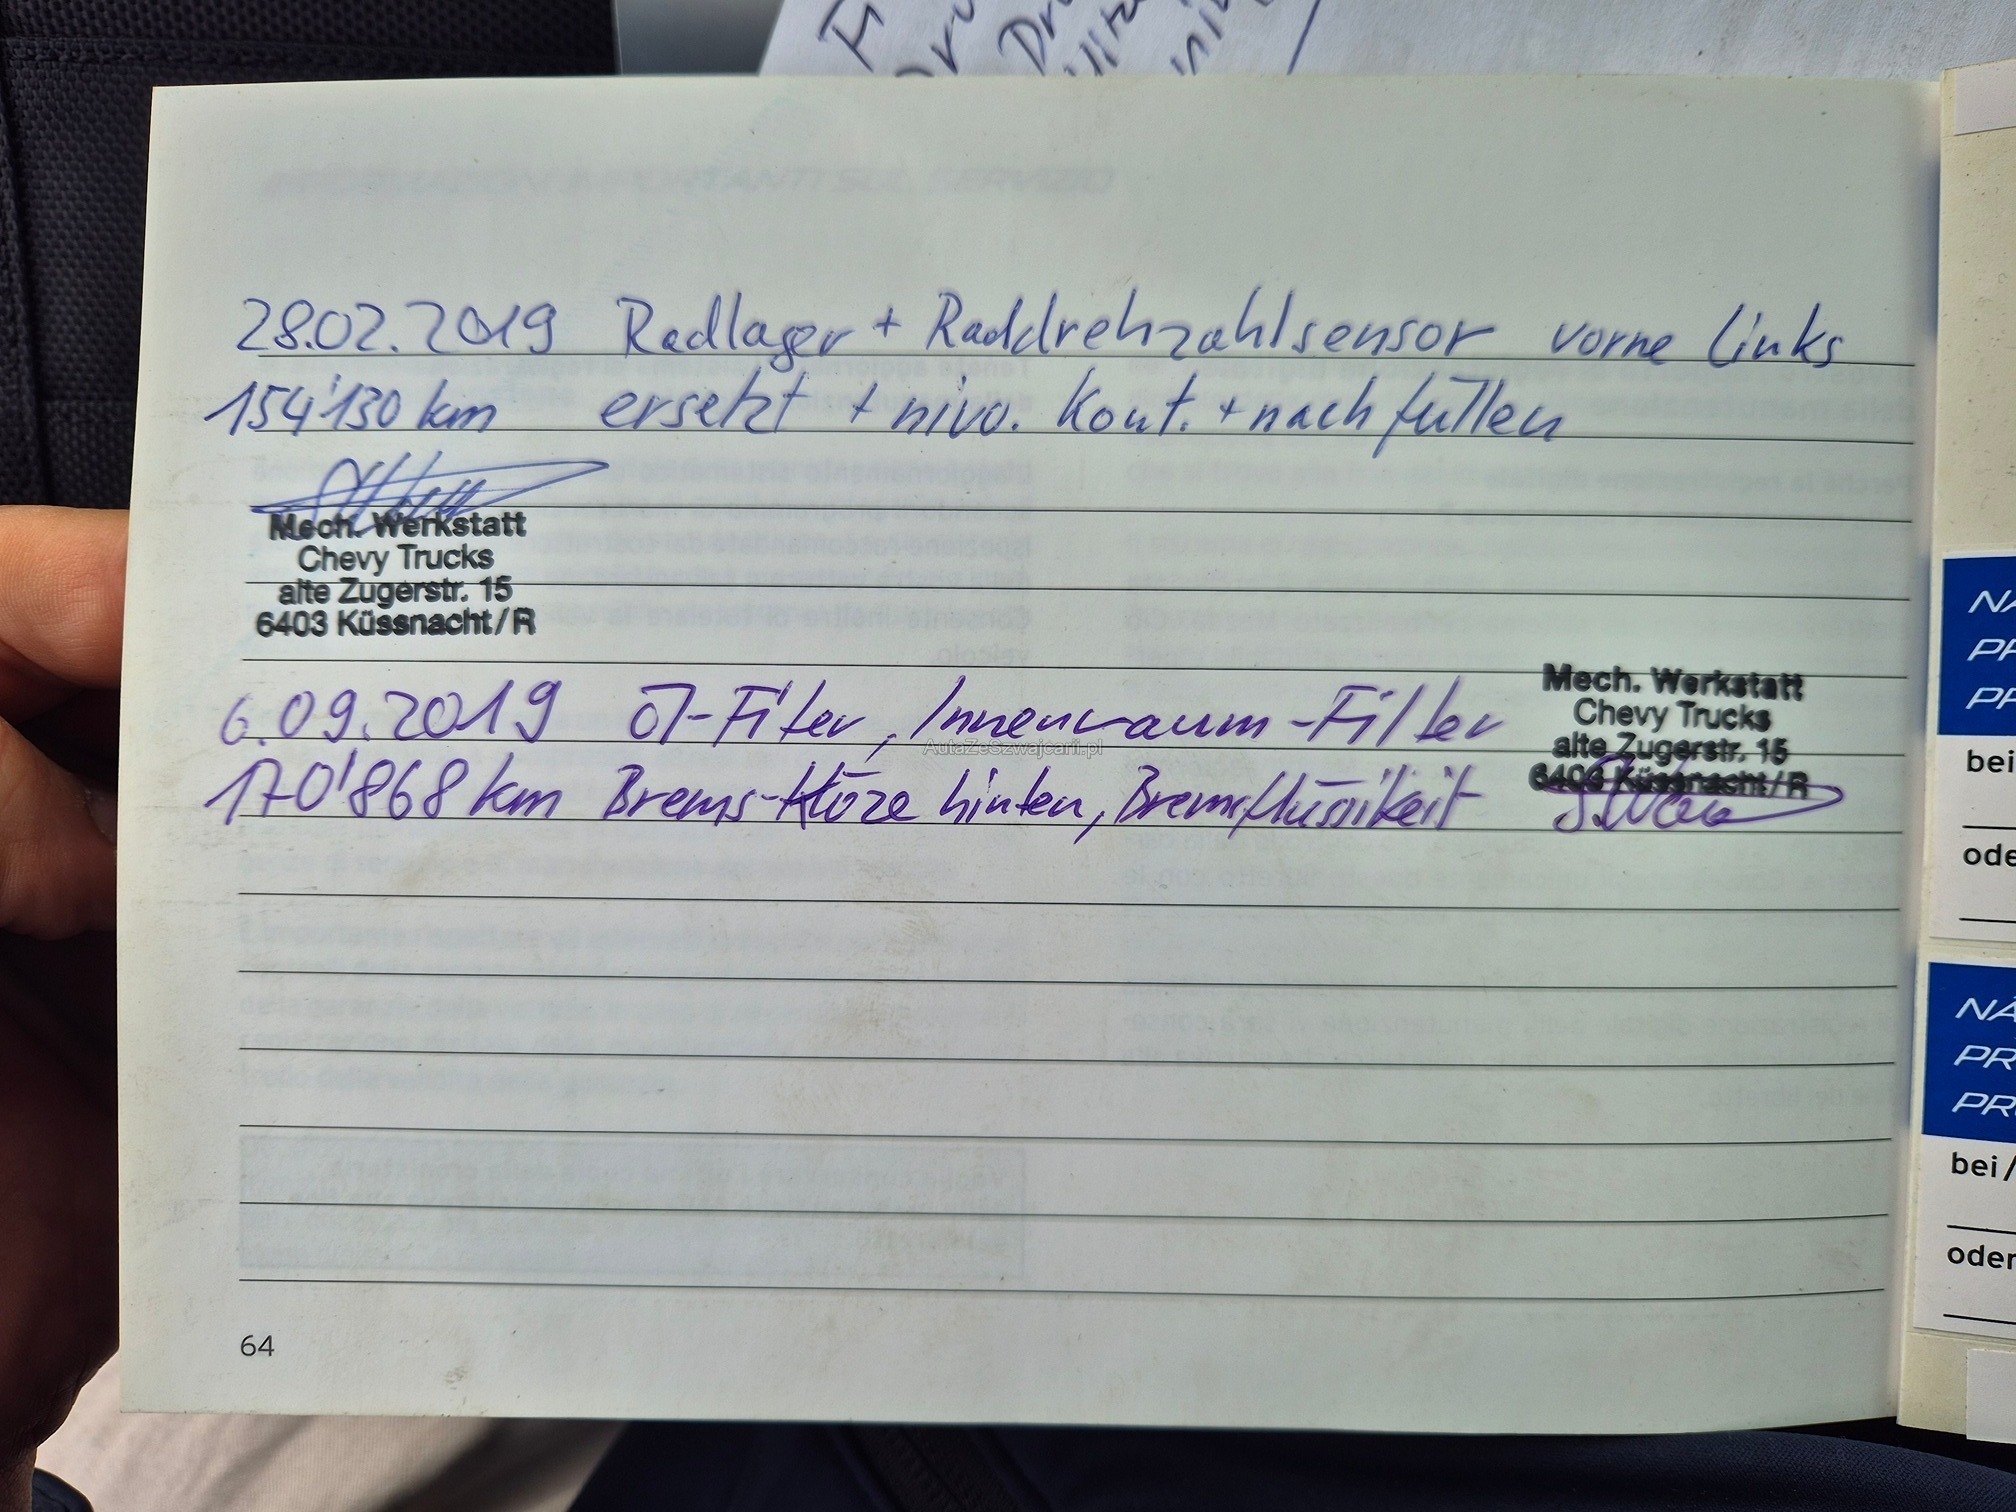 28.02.2019 Radlager + Raddrehzahlsensor vorne links
154'130 km ersetzt + nivo. Kont. + nachfüllen
Mech. Werkstatt
Chevy Trucks
alte Zugerstr. 15
6403 Küssnacht/R
6.09.2019 Öl-Filter, Innenraum-Filter
170'868 km Brems-Klöze hinten, Bremsflüssikeit
Mech. Werkstatt
Chevy Trucks
alte Zugerstr. 15
6403 Küssnacht/R
AutaZeSzwajcarii.pl
64
NÄ
PR
PR
bei
ode
NÄ
PR
PR
bei/
oder